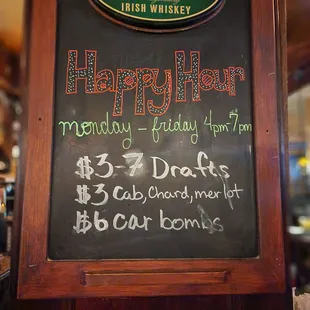 IRISH WHISKEY
Happy Hour
monday - friday 4pm-7pm
$3-7 Drafts
$3 Cab, Chard, merlot
$6 car bombs